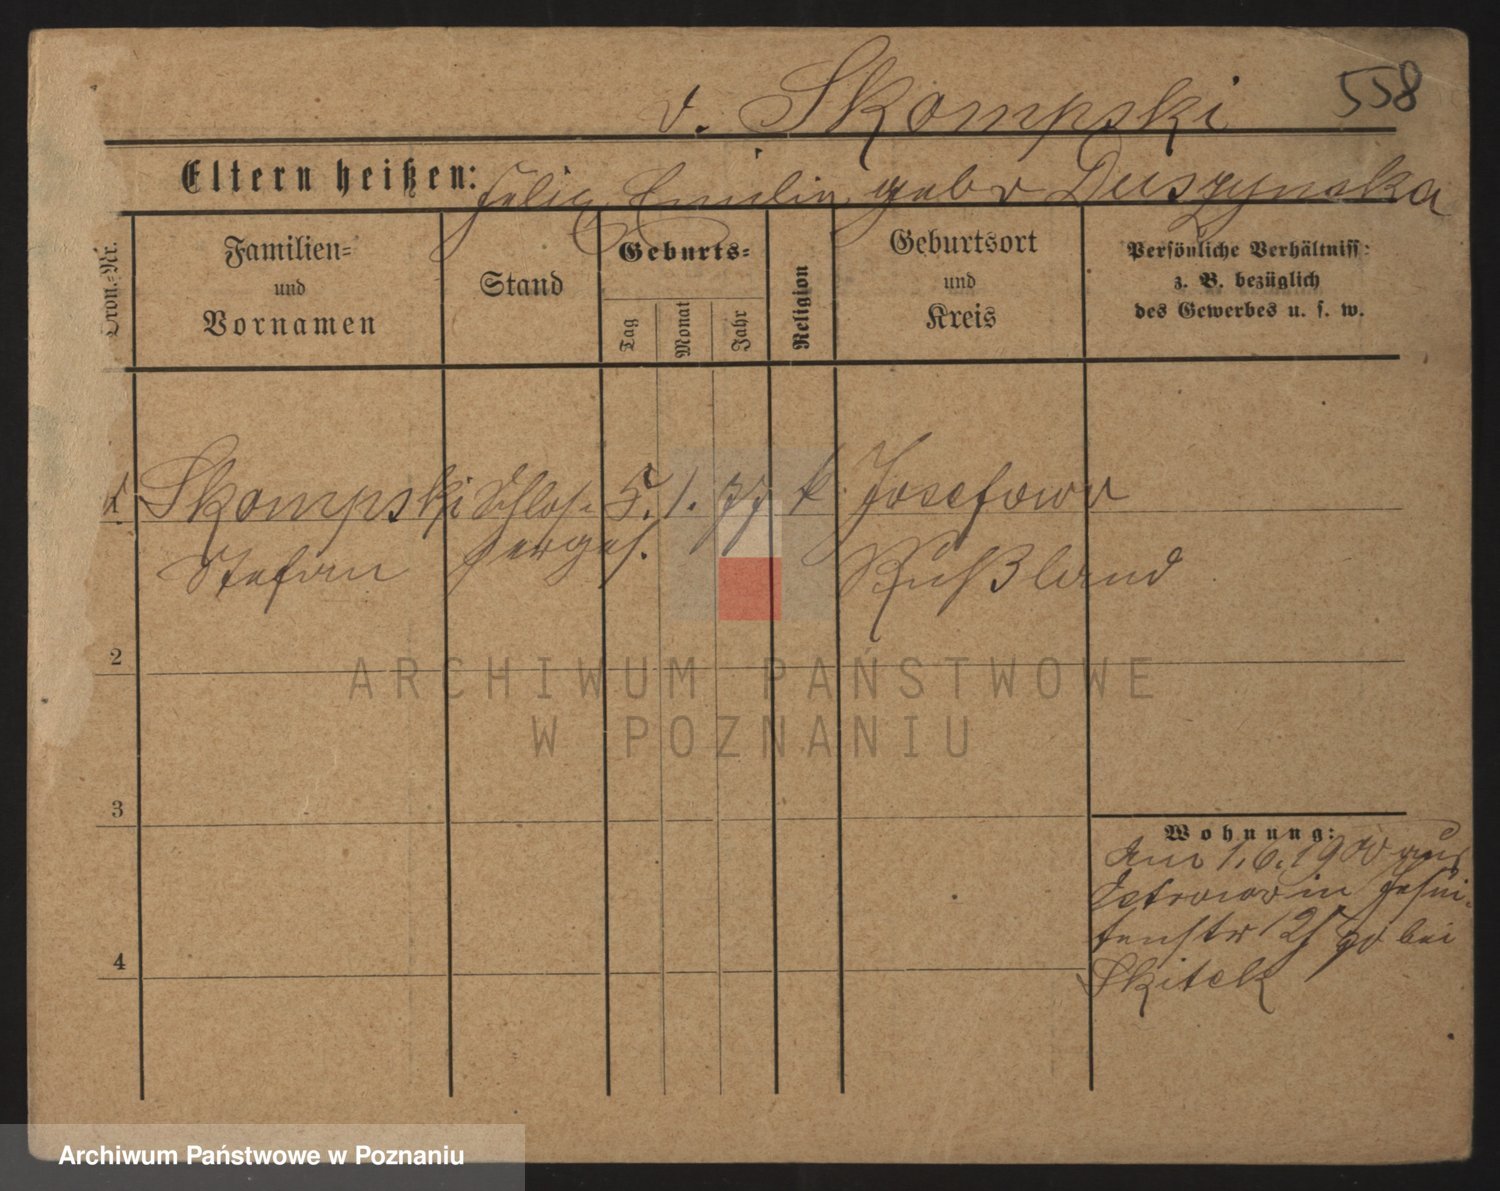 558
v. Skompski
Eltern heißen: Felix Emilia gebr Duszynska
Oron.-Nr.
Familien-
und
Vornamen
Stand
Geburts-
Tag
Monat
Jahr
Religion
Geburtsort
und
Kreis
Persönliche Verhältniss:
z. B. bezüglich
des Gewerbes u. s. w.
1. Skompski Schlos- 5. 1. 77 k. Josefowo
Stefan serges. Rußland
2
3
4
Wohnung:
Am 1.6.1900 aus
Ostrowo in Jesui-
tenstr 12 bei
Skitek
ARCHIWUM PAŃSTWOWE
W POZNANIU
Archiwum Państwowe w Poznaniu